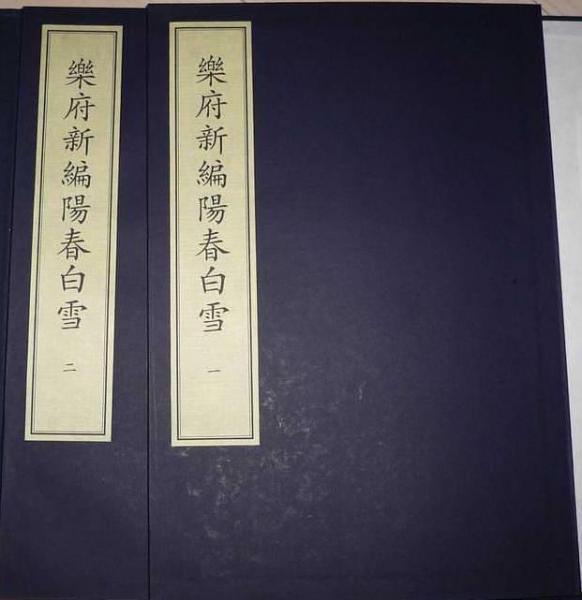 樂府新編陽春白雪
一
樂府新編陽春白雪
二